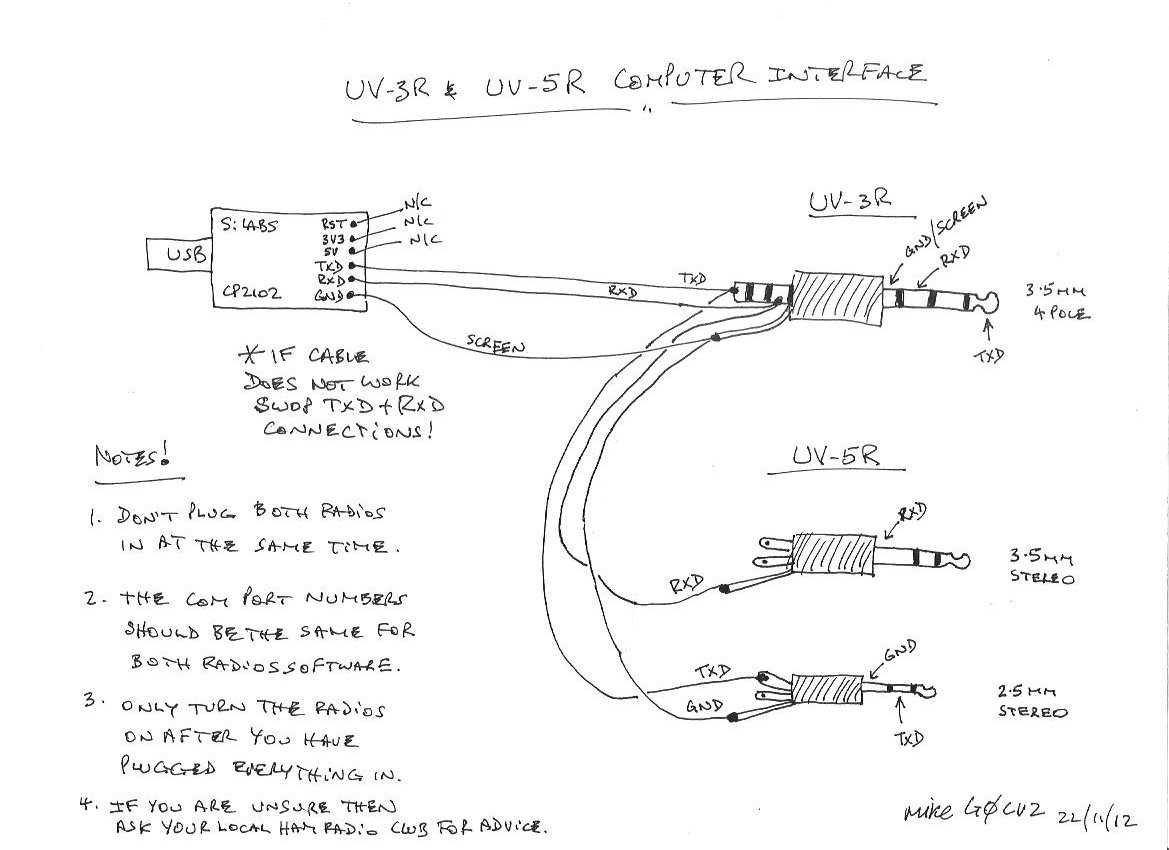 UV-3R & UV-5R COMPUTER INTERFACE
UV-3R
S:LABS
USB
CP2102
RST
3V3
5V
TXD
RXD
GND
N/C
N/C
N/C
TXD
RXD
SCREEN
GND/SCREEN
RXD
TXD
3.5MM
4 POLE
* IF CABLE
DOES NOT WORK
SWOP TXD + RXD
CONNECTIONS!
UV-5R
RXD
RXD
3.5MM
STEREO
TXD
GND
GND
TXD
2.5MM
STEREO
NOTES!
1. DON'T PLUG BOTH RADIOS
IN AT THE SAME TIME.
2. THE COM PORT NUMBERS
SHOULD BE THE SAME FOR
BOTH RADIOS SOFTWARE.
3. ONLY TURN THE RADIOS
ON AFTER YOU HAVE
PLUGGED EVERYTHING IN.
4. IF YOU ARE UNSURE THEN
ASK YOUR LOCAL HAM RADIO CLUB FOR ADVICE.
MIKE GØCVZ 22/11/12